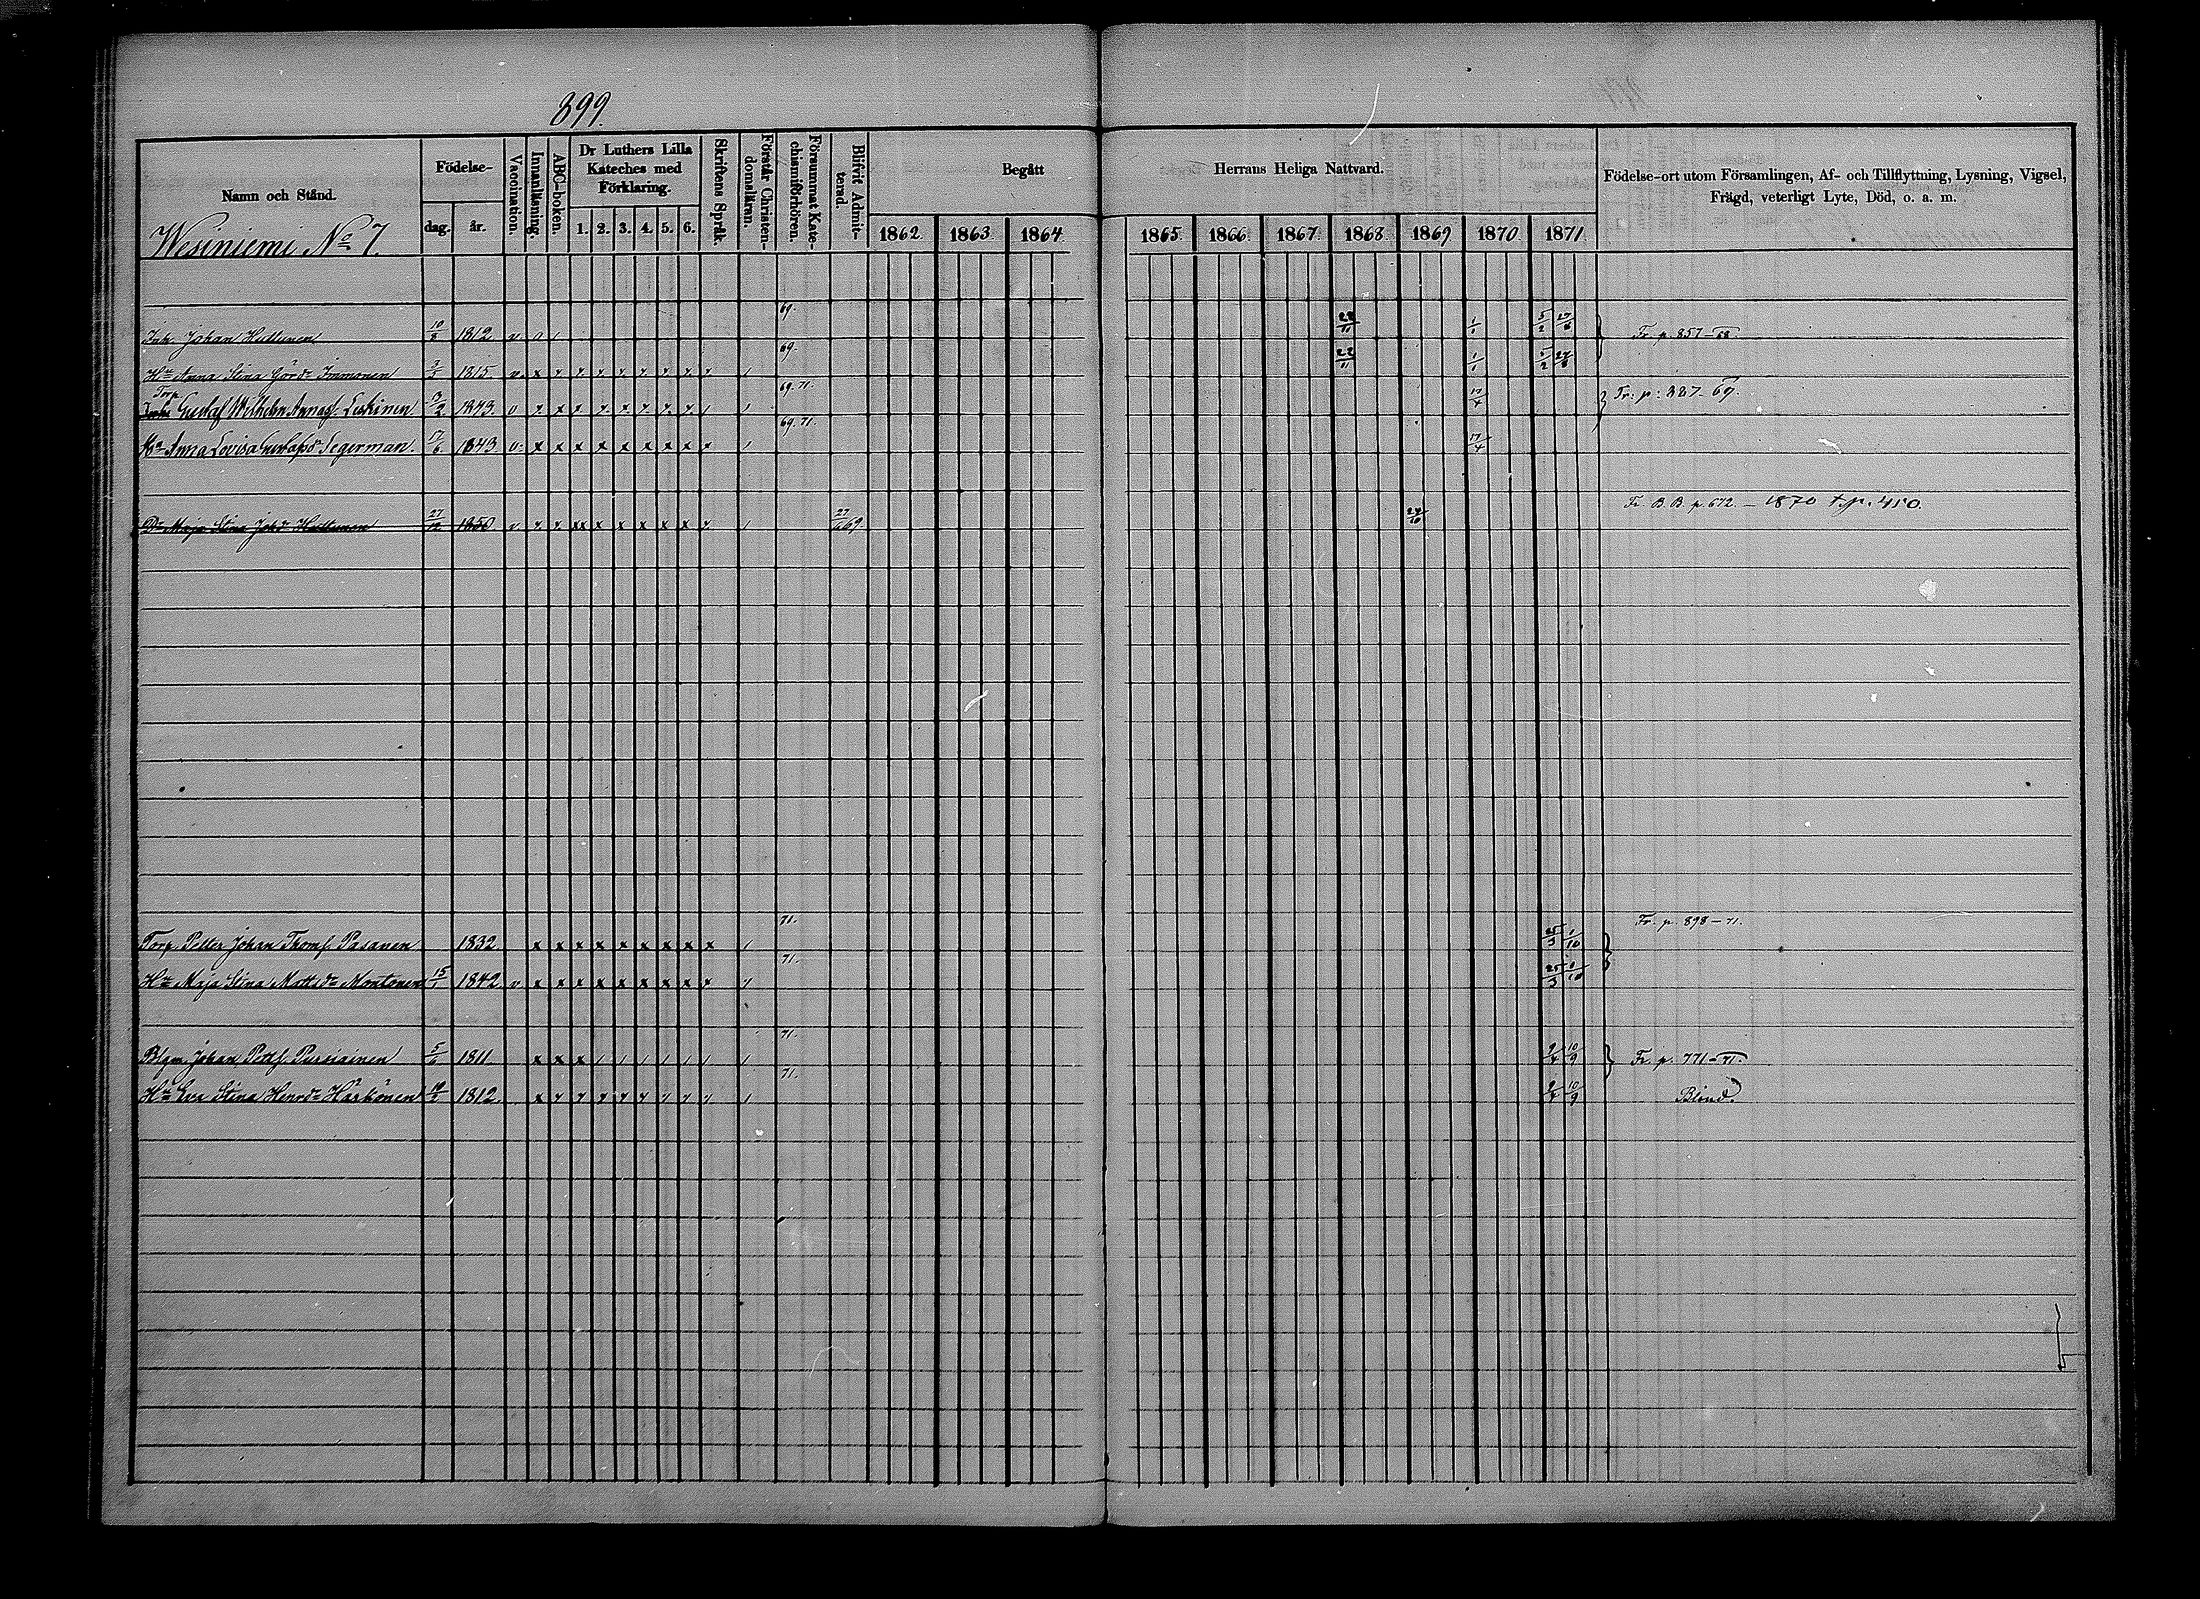 899.
Namn och Stånd.
Födelse-
dag.
år.
Vaccination.
Innanläsning.
ABC-boken.
Dr Luthers Lilla Kateches med Förklaring.
1. 2. 3. 4. 5. 6.
Skriftens Språk.
Förstår Christen-domslkran.
Försummat Kate-chismiförhören.
Blifvit Admit-terad.
Begått
Herrans Heliga Nattvard.
1862. 1863. 1864. 1865. 1866. 1867. 1868. 1869 1870. 1871.
Födelse-ort utom Församlingen, Af- och Tillflyttning, Lysning, Vigsel,
Frägd, veterligt Lyte, Död, o. a. m.
Wesiniemi No 7.
Inh. Johan Huttunen 10/8 1812 v 69. 22/11 1/1 5/2 27/8 Fr. p. 857-68
Hu Anna Stina Görd. Immonen 1815. v. x 69. 22/11 1/1 5/2 27/8
Torp. Gustaf Wilhelm Annaf. Leskinen 3/2 1843 v 69. 71. 17/4 Fr: p: 887-69.
Hu Anna Lovisa Segerman. 17/6 1843 v. x x x x x x x x x 69. 71. 17/4
Dr Maja Stina Johd. Huttunen 27/12 1850 v 27/69 24/10 Fr. B.B. p. 672. — 1870 t. p. 450.
Torp. Petter Johan Thomf. Pasanen 1832 x x x x x x x x x 71. 25/3 1/10 Fr. p. 898-71.
Hu Maja Stina Mattsdr Montonen 15/1 1842 v x x x x x x x x x 71. 25/3 1/10
Blgm. Johan Pettf. Pursiainen 5/6 1811 x x x 71. 9/4 10/9 Fr. p. 771-71.
Hu Eva Stina Henrdr Härkönen 1812 x 71. 9/4 10/9 Blind.